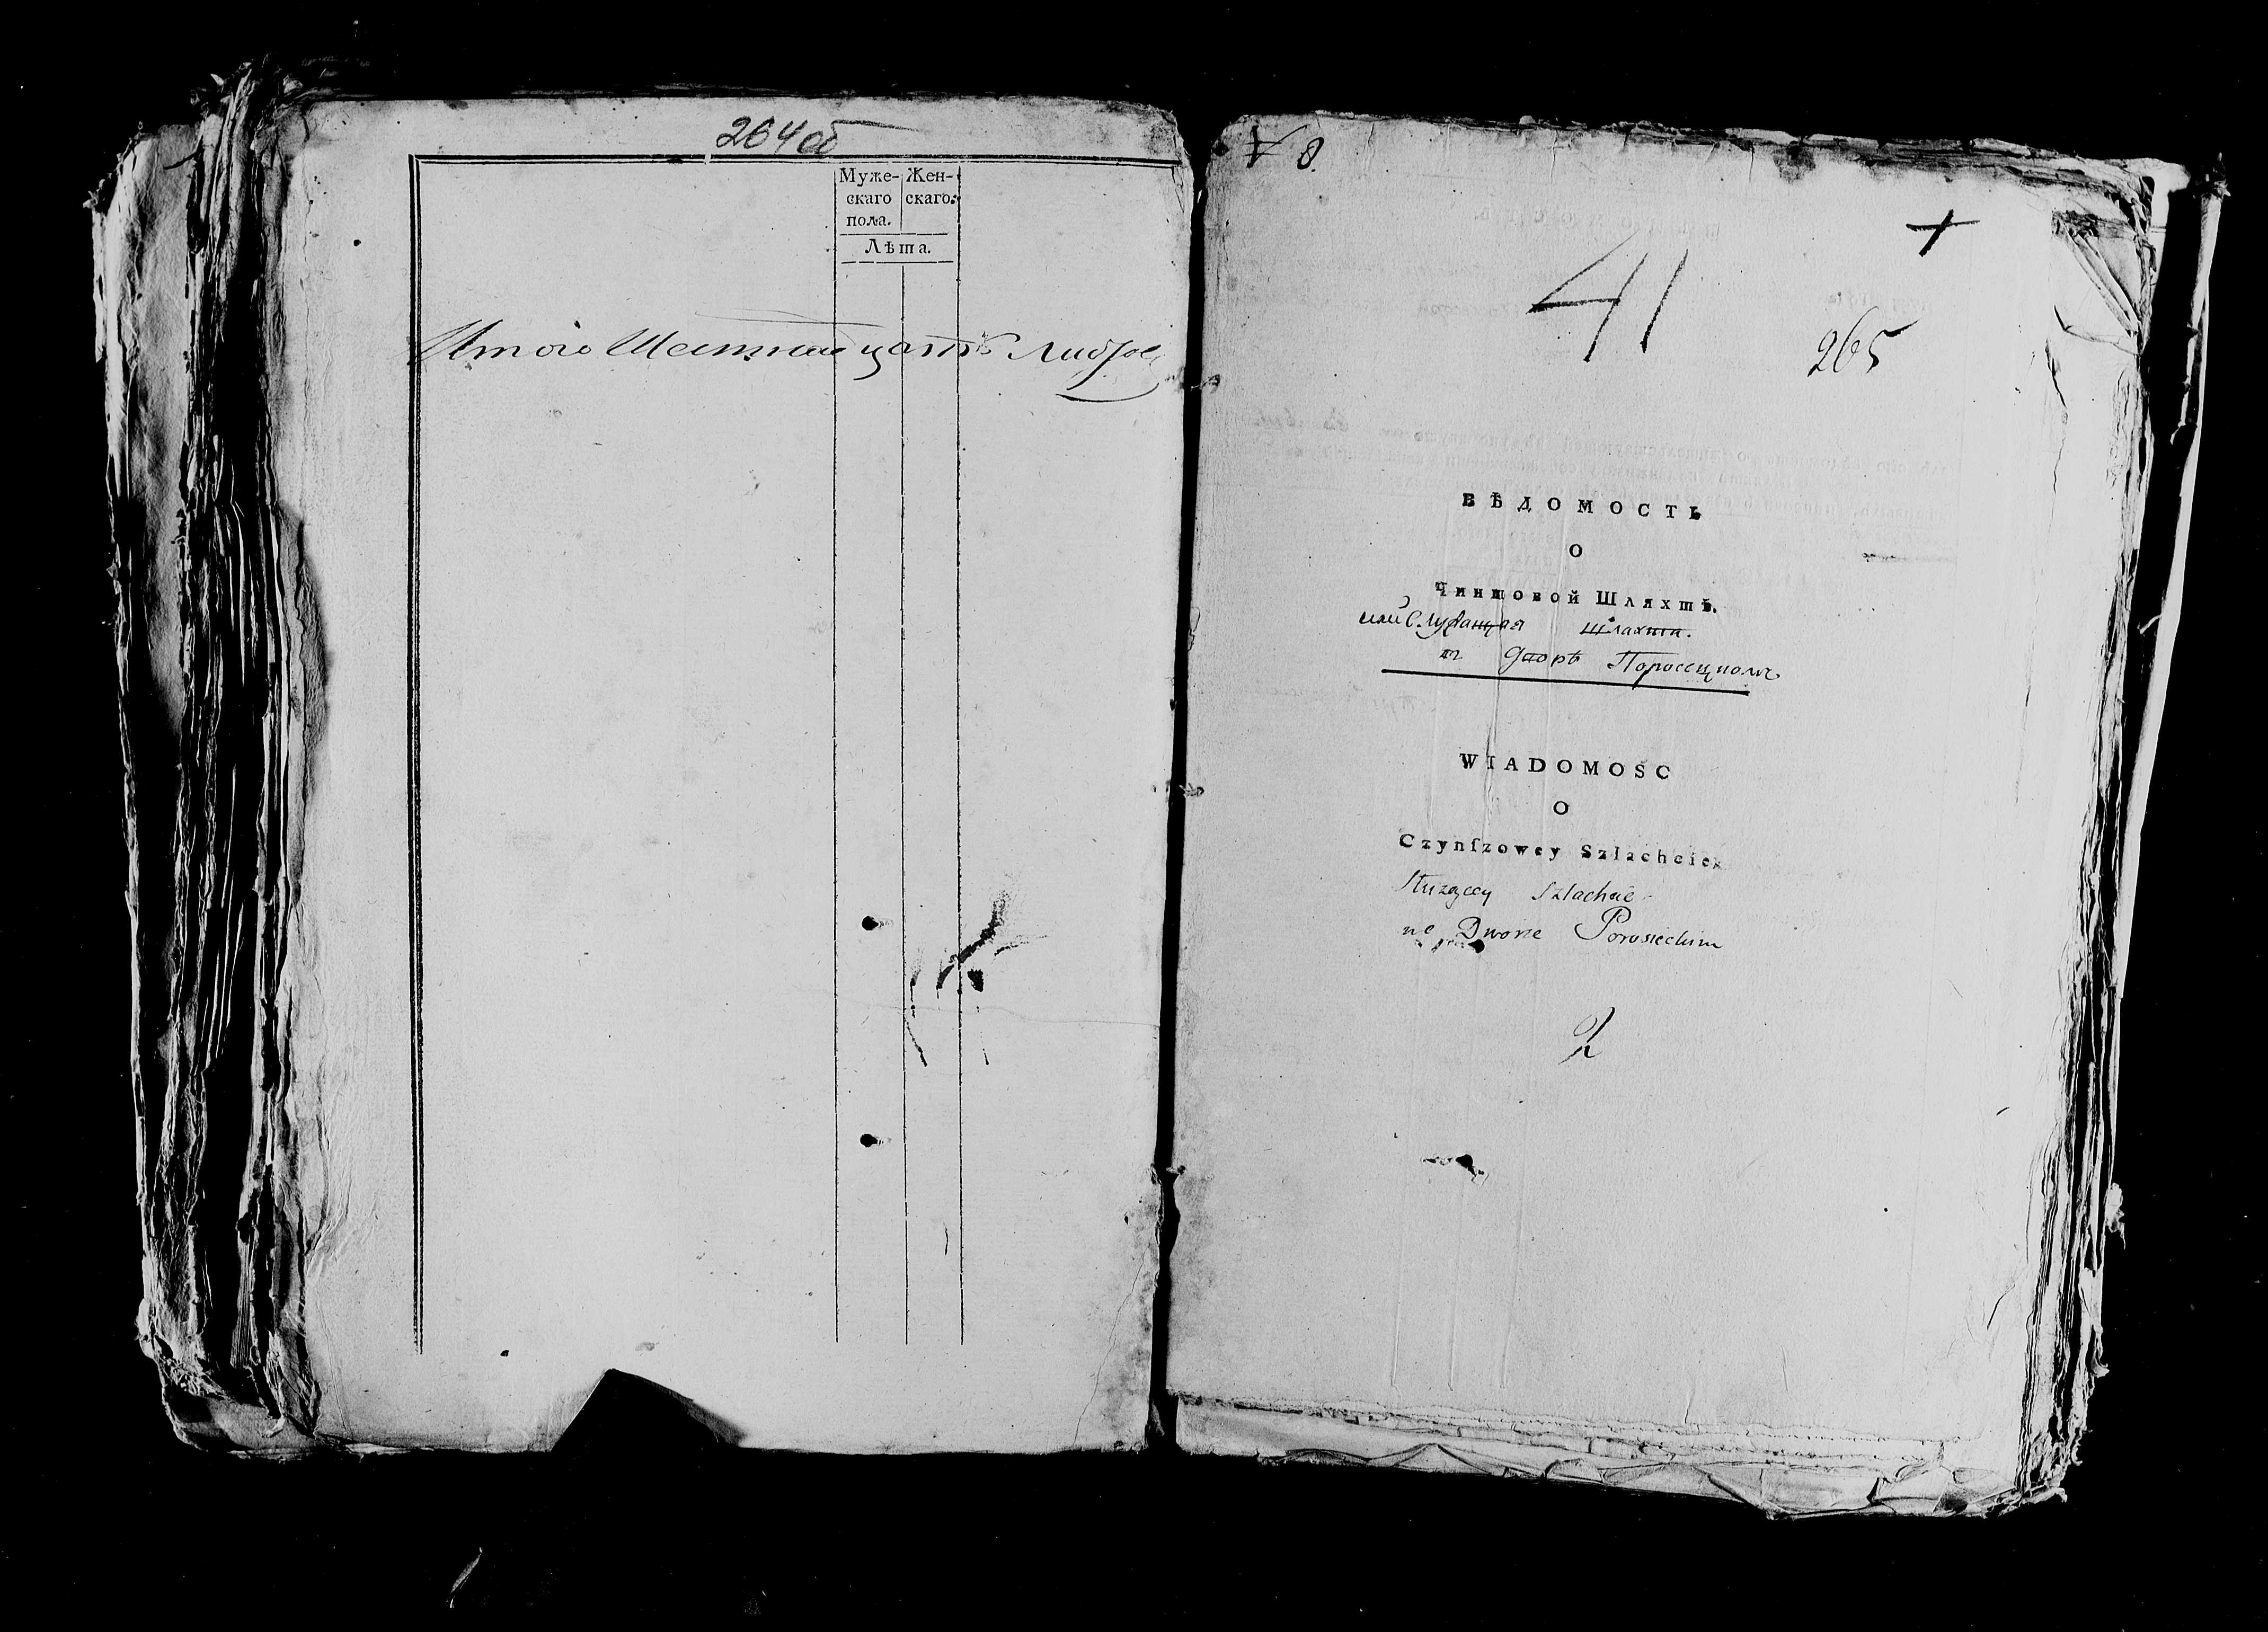 264 об
Муже-
скаго
пола.
Жен-
скаго.
Лѣта.
Итого Шестнадцать
8.
41
265
ВѢДОМОСТЬ
О
Чиншовой Шляхтѣ.
или Служащая Шляхта.
WIADOMOSC
O
Czynſzowey Szlachcie
Służący Szlachcie
we Dworze Porosieckim
2